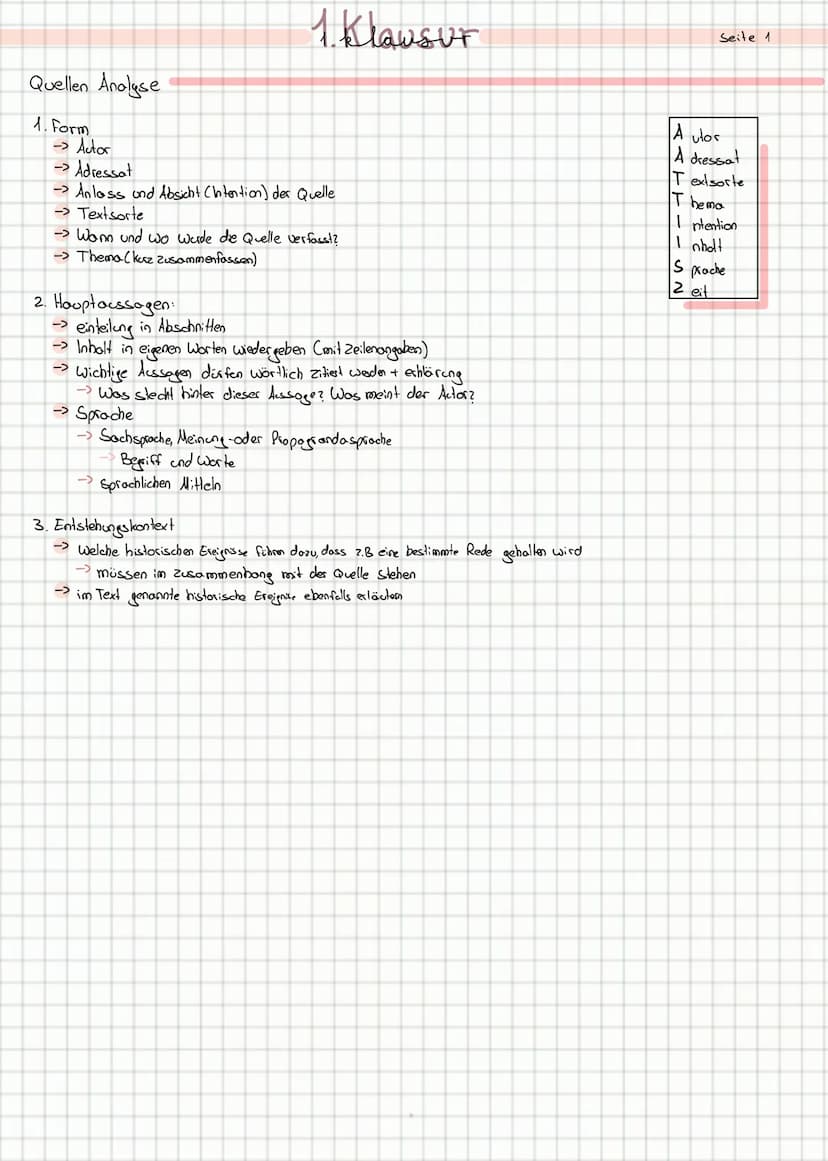 1. Klausur
Seite 1
Quellen Analyse
1. Form
-> Autor
-> Adressat
-> Anlass und Absicht (Intention) der Quelle
-> Textsorte
-> Wann und wo wurde die Quelle verfasst?
-> Thema (kurz zusammenfassen)
A utor
A dressat
T extsorte
T hema
I ntention
I nhalt
S prache
Z eit
2. Hauptaussagen:
-> einteilung in Abschnitten
-> Inhalt in eigenen Worten wiedergeben (mit Zeilenangaben)
-> Wichtige Aussagen dürfen wörtlich zitiert werden + erklärung
-> Was steckt hinter dieser Aussage? Was meint der Autor?
-> Sprache
-> Sachsprache, Meinung- oder Propagrandasprache
-> Begriff und Worte
-> Sprachlichen Mitteln
3. Entstehungskontext
-> Welche historischen Ereignisse führen dazu, dass z.B eine bestimmte Rede gehalten wird
-> müssen im Zusammenhang mit der Quelle stehen
-> im Text genannte historische Ereignisse ebenfalls erläutern